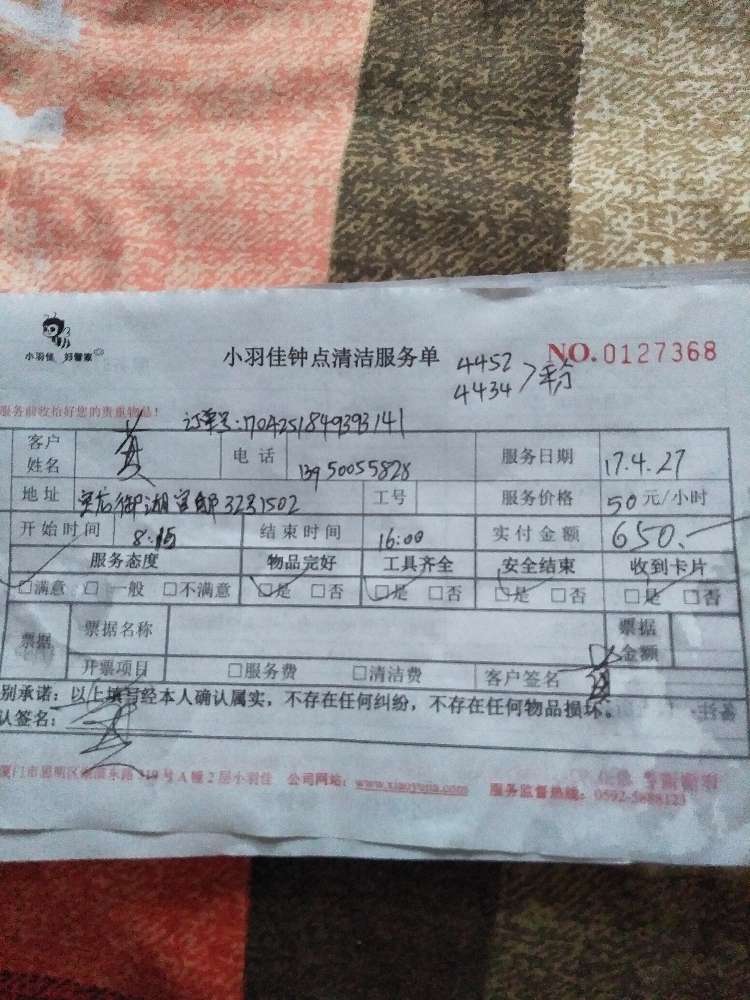 小羽佳 好管家
小羽佳钟点清洁服务单
NO.0127368
4452
4434
服务前收拾好您的贵重物品!
订单号:1704251849393141
客户姓名 黄 电话 13950055828 服务日期 17.4.27
地址 御湖官邸3231502 工号 服务价格 50元/小时
开始时间 8:15 结束时间 16:00 实付金额 650.-
服务态度 物品完好 工具齐全 安全结束 收到卡片
□满意 □一般 □不满意 □是 □否 □是 □否 □是 □否 □是 □否
票据 票据名称 票据金额
开票项目 □服务费 □清洁费 客户签名 黄
别承诺:以上填写经本人确认属实,不存在任何纠纷,不存在任何物品损坏。
认签名: 黄
厦门市思明区 东路 号A幢2层小羽佳 公司网站:www.xiaoyujia.com 服务监督热线:0592-5888123